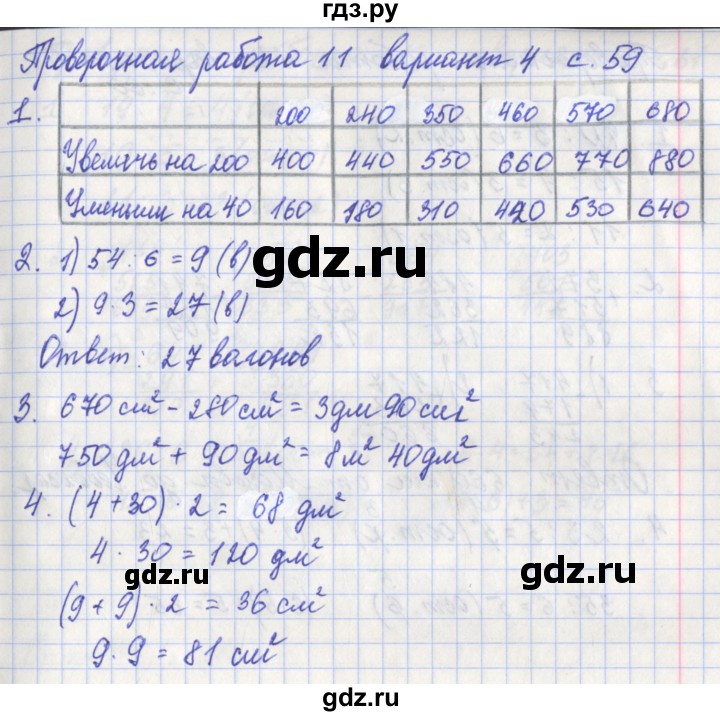 гдз.ру
Проверочная работа 11 вариант 4 с. 59
1. 200 240 350 460 570 680
Увеличь на 200 400 440 550 660 770 880
Уменьши на 40 160 180 310 420 530 640
2. 1) 54 : 6 = 9 (в)
gdz.ru
2) 9 · 3 = 27 (в)
Ответ: 27 вагонов
3. 670 см² - 280 см² = 3 дм 90 см²
750 дм² + 90 дм² = 8 м² 40 дм²
4. (4 + 30) · 2 = 68 дм²
4 · 30 = 120 дм²
gdz.ru gdz.ru
(9 + 9) · 2 = 36 см²
9 · 9 = 81 см²
gdz.ru